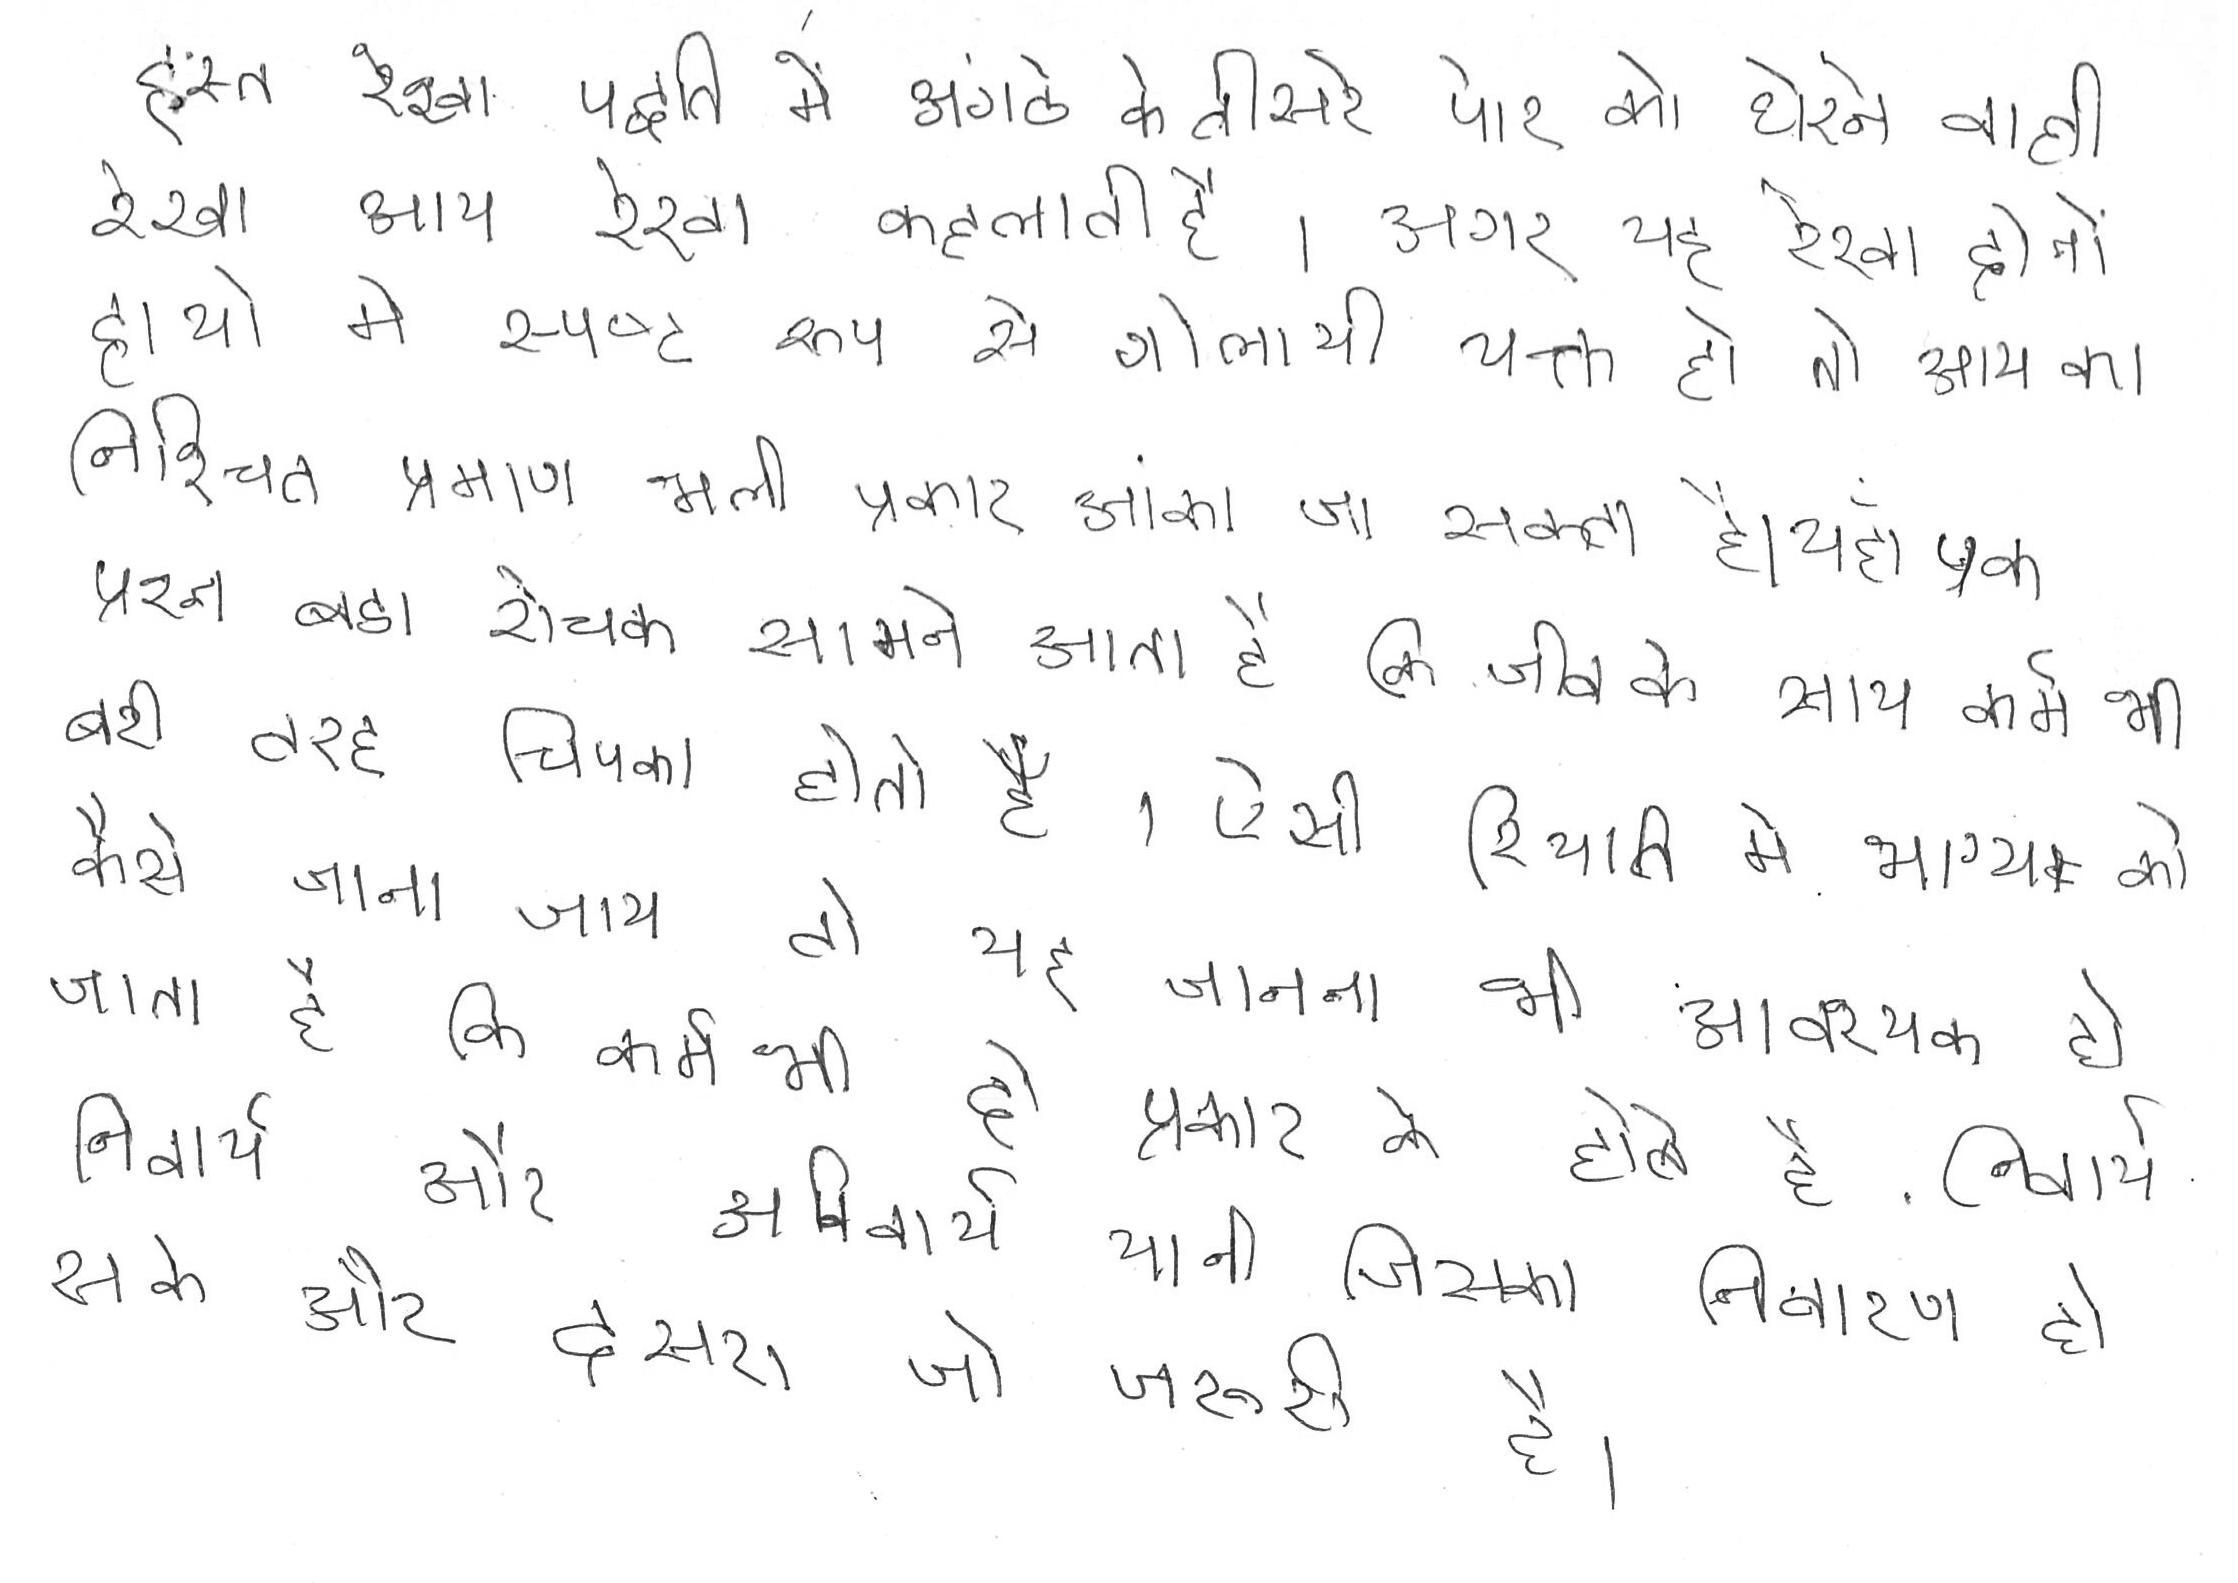 हस्त रेखा पद्धति में अंगठे के तीसरे पोर को घेरने वाली
रेखा आय रेखा कहलाती है । अगर यह रेखा दोनों
हाथो मे स्पष्ट रूप से गोलायी यक्त हो तो आय का
निश्चित प्रमाण भली प्रकार आंका जा सकता है। यहाँ एक
प्रश्न बडा रोचक सामने आता है कि जीव के साथ कर्म भी
बरी तरह चिपका होतो है । ऐसी स्थिाति मे भाग्य को
कैसे जाना जाय तो यह जानना भी आवश्यक हो
जाता है कि कर्म भी दो प्रकार के होते है . निवार्य
निवार्य और अनिवार्य यानी जिसका निवारण हो
सके और दसरा जो जरूरी है।